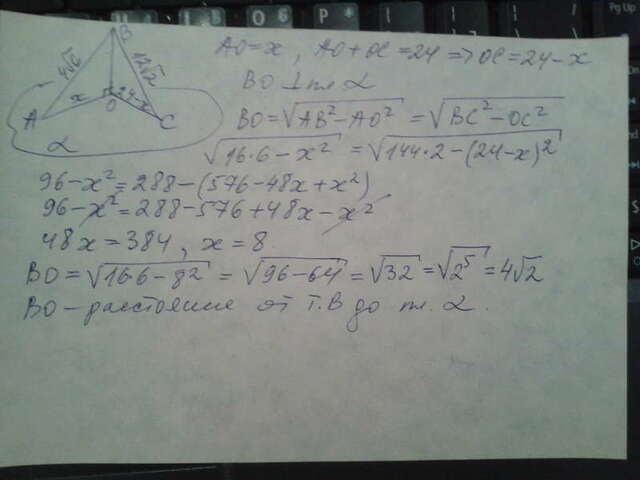 B
4√6
12√2
x
24-x
A
O
C
α
AO=x, AO+OC=24 => OC=24-x
BO ⊥ пл. α
BO=√AB²-AO² = √BC²-OC²
√16·6-x² = √144·2-(24-x)²
96-x²=288-(576-48x+x²)
96-x²=288-576+48x-x²
48x=384, x=8
BO=√16·6-8² = √96-64 = √32 = √2⁵ = 4√2
BO-расстояние от т.B до пл. α.
Pg Up